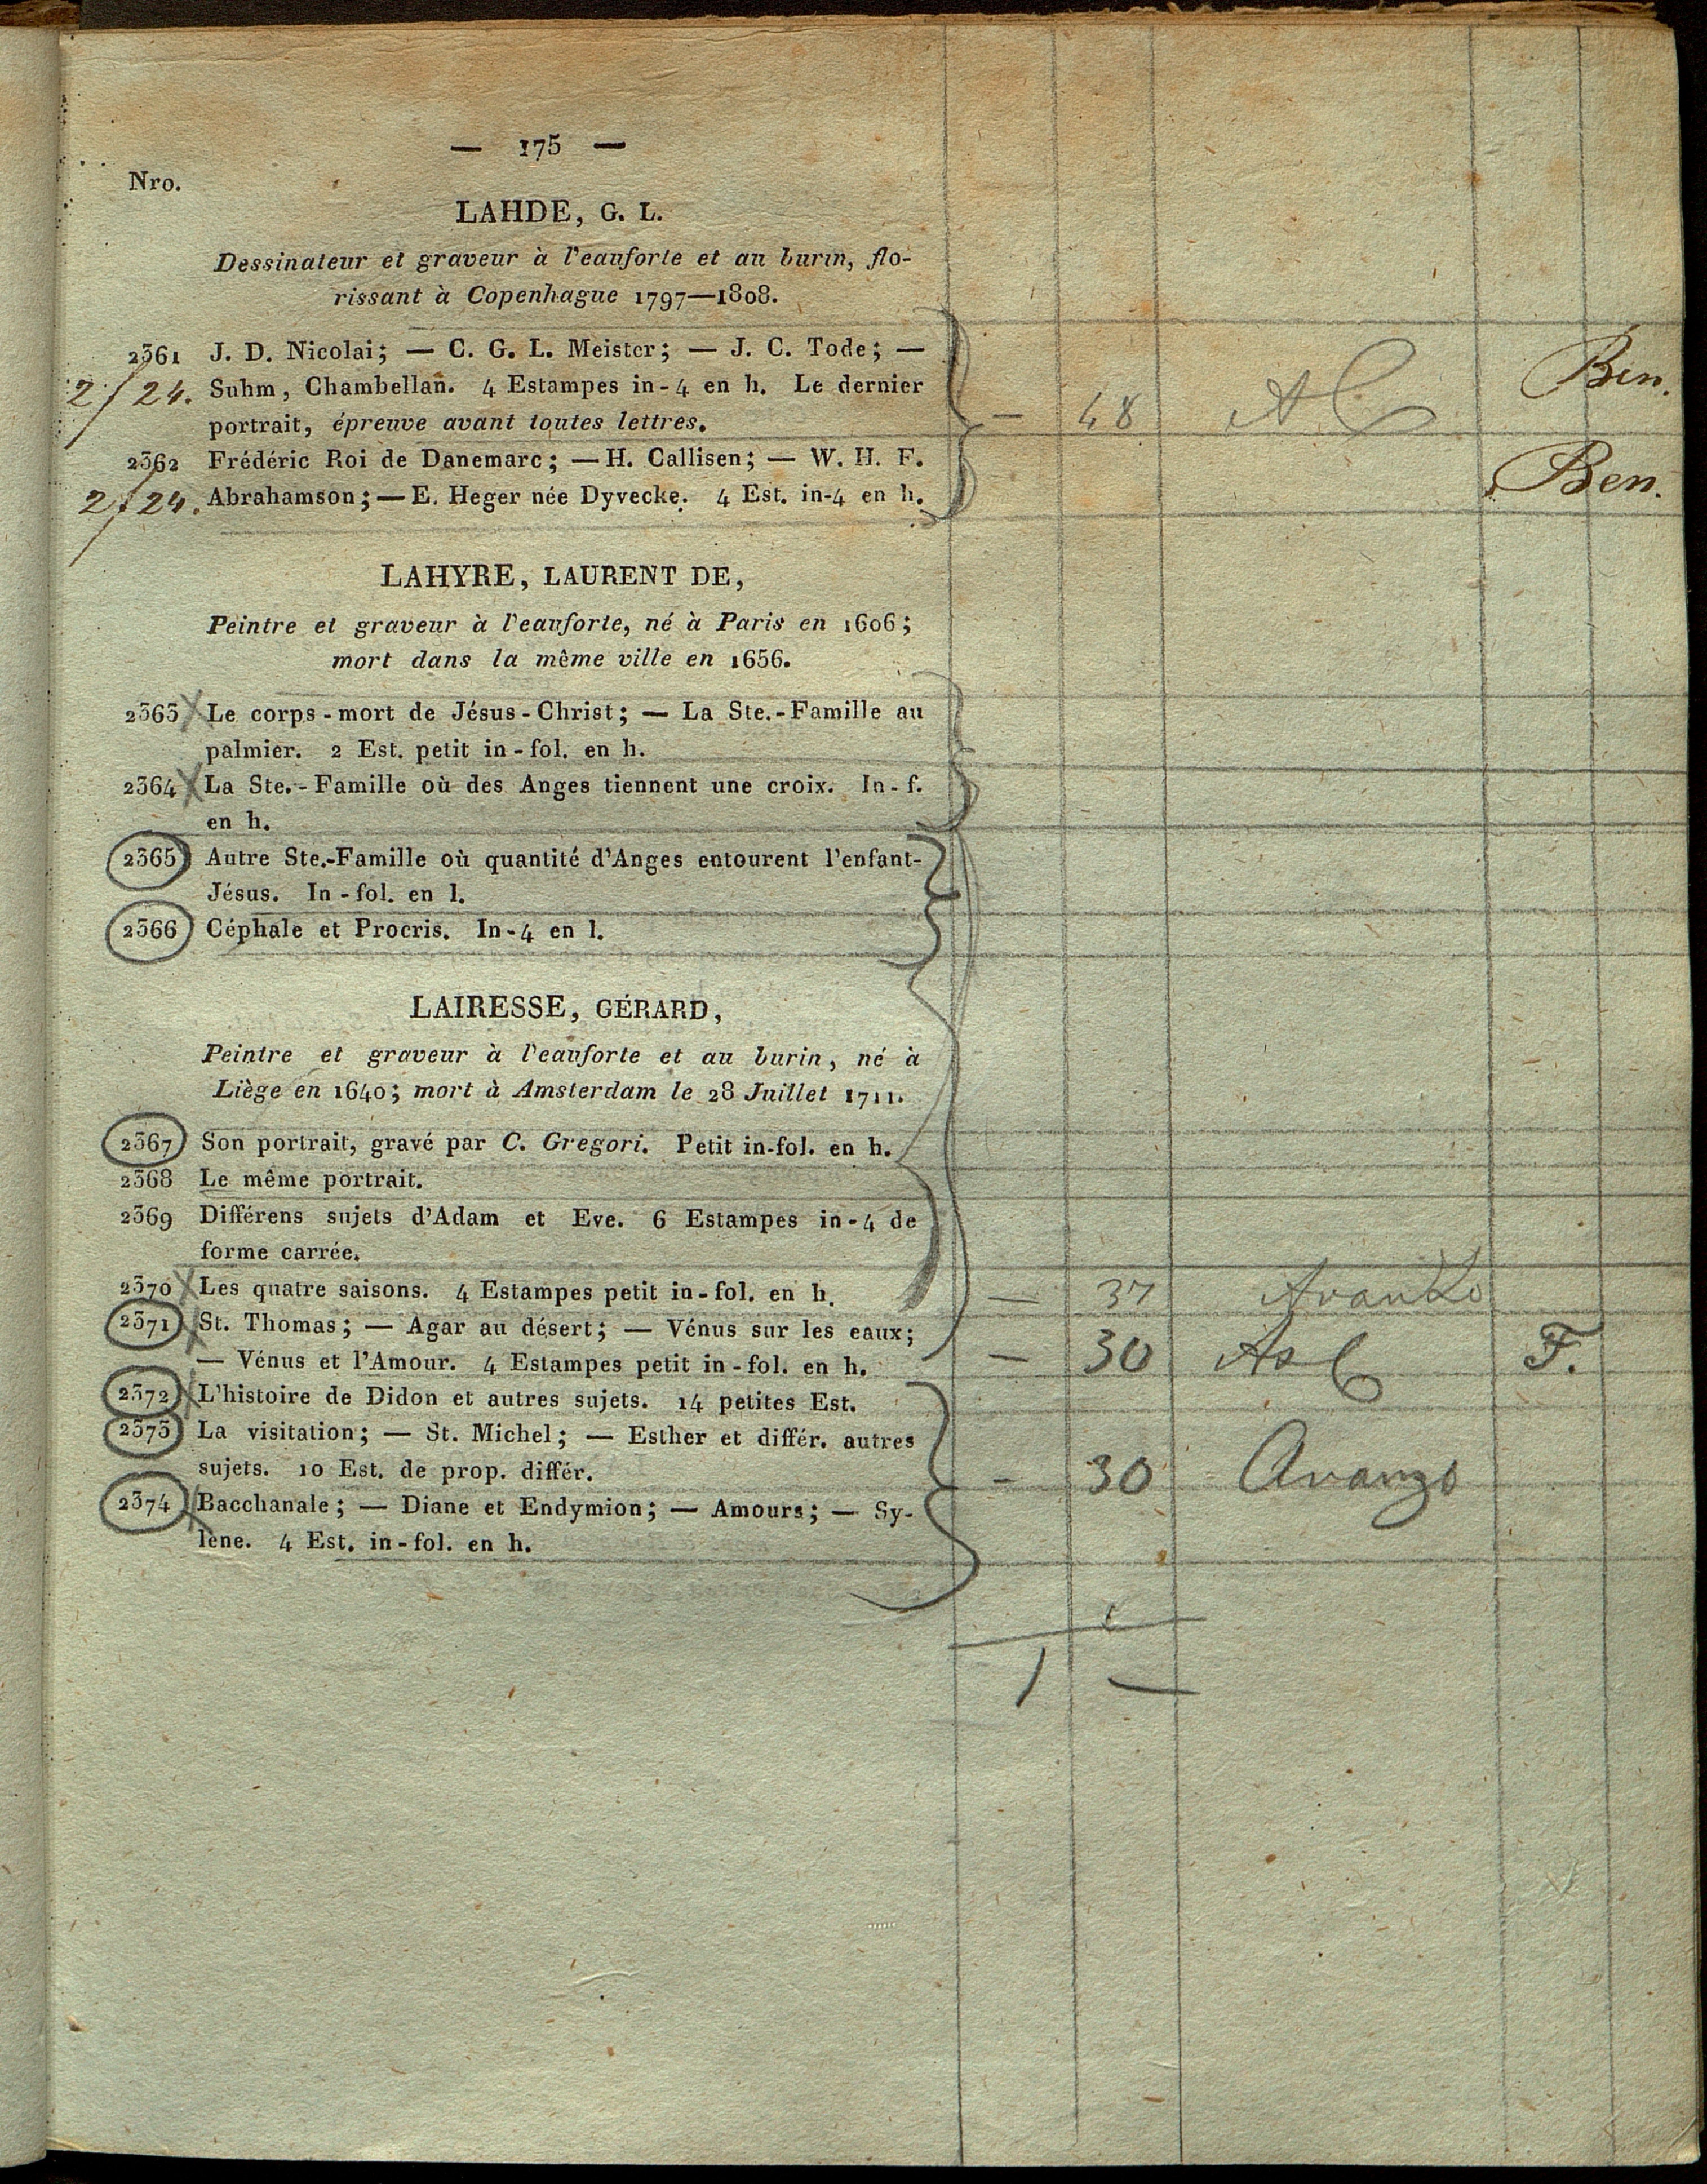 — 175 —
Nro.
LAHDE, G. L.
Dessinateur et graveur à l'eauforte et au burin, flo-
rissant à Copenhague 1797—1808.
2361 J. D. Nicolai; — C. G. L. Meister; — J. C. Tode; —
2/24. Suhm, Chambellan. 4 Estampes in-4 en h. Le dernier Ben.
portrait, épreuve avant toutes lettres. — 48
2362 Frédéric Roi de Danemarc; — H. Callisen; — W. H. F.
2/24. Abrahamson; — E. Heger née Dyvecke. 4 Est. in-4 en h. Ben.
LAHYRE, LAURENT DE,
Peintre et graveur à l'eauforte, né à Paris en 1606;
mort dans la même ville en 1656.
2363 Le corps-mort de Jésus-Christ; — La Ste.-Famille au
palmier. 2 Est. petit in-fol. en h.
2364 La Ste.-Famille où des Anges tiennent une croix. In-f.
en h.
2365 Autre Ste.-Famille où quantité d'Anges entourent l'enfant-
Jésus. In-fol. en l.
2366 Céphale et Procris. In-4 en l.
LAIRESSE, GÉRARD,
Peintre et graveur à l'eauforte et au burin, né à
Liège en 1640; mort à Amsterdam le 28 Juillet 1711.
2367 Son portrait, gravé par C. Gregori. Petit in-fol. en h.
2368 Le même portrait.
2369 Différens sujets d'Adam et Eve. 6 Estampes in-4 de
forme carrée.
2370 Les quatre saisons. 4 Estampes petit in-fol. en h. — 37
2371 St. Thomas; — Agar au désert; — Vénus sur les eaux;
— Vénus et l'Amour. 4 Estampes petit in-fol. en h. — 30 F.
2372 L'histoire de Didon et autres sujets. 14 petites Est.
2373 La visitation; — St. Michel; — Esther et différ. autres
sujets. 10 Est. de prop. différ. — 30 Avanzo
2374 Bacchanale; — Diane et Endymion; — Amours; — Sy-
lène. 4 Est. in-fol. en h.
1 —